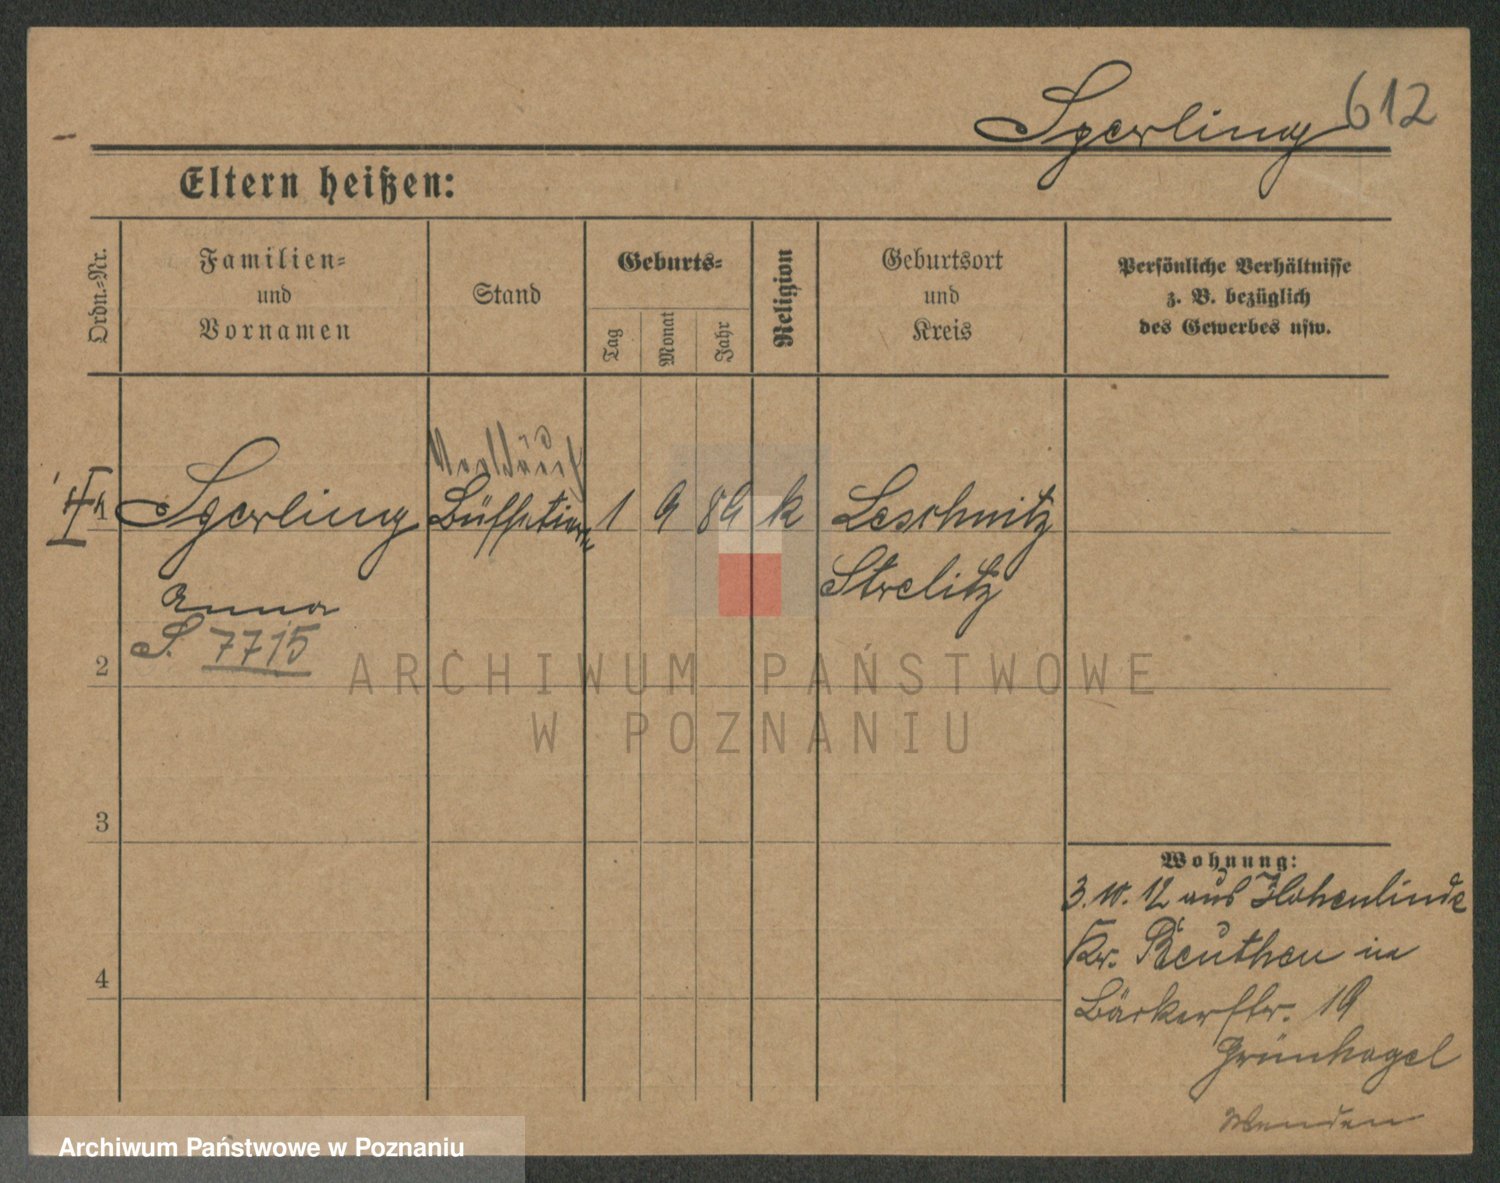 Sperling 612
Eltern heißen:
Ordn.-Nr.
Familien-
und
Vornamen
Stand
Geburts-
Tag
Monat
Jahr
Religion
Geburtsort
und
Kreis
Persönliche Verhältnisse
z. B. bezüglich
des Gewerbes usw.
1
Sperling
Büffetiere
1 9 89 k
Leschnitz
Strelitz
Anna
S. 7715
2
3
4
Wohnung:
3. 10. 12 aus Hohenlinde
Kr. Beuthen in
Bäckerstr. 19
Grünhagel
Wenden
ARCHIWUM PAŃSTWOWE
W POZNANIU
Archiwum Państwowe w Poznaniu